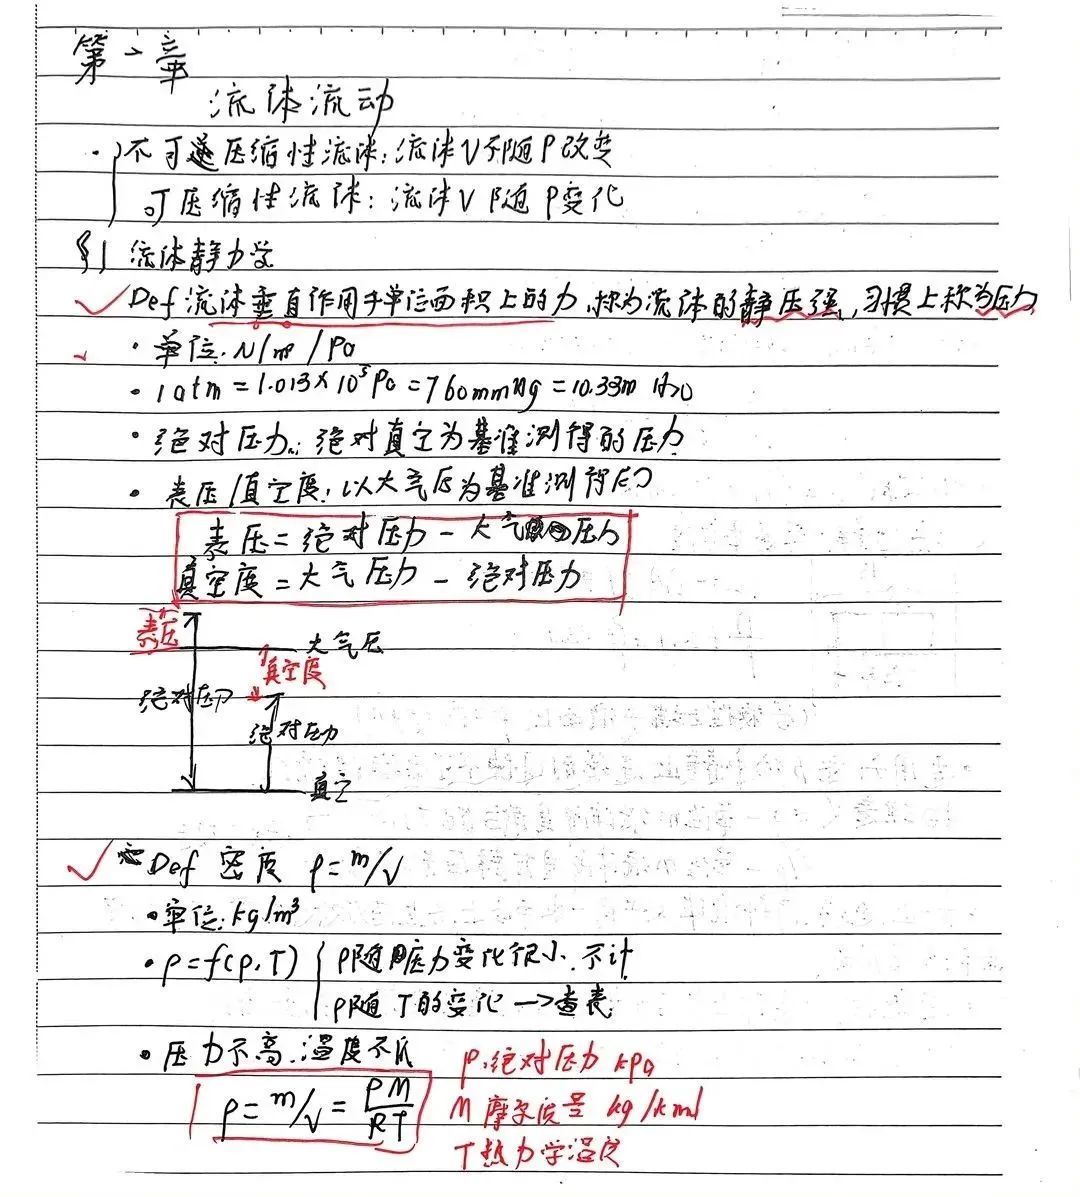 第一章
流体流动
不可压缩性流体:流体V不随P改变
可压缩性流体:流体V随P变化
§1 流体静力学
Def 流体垂直作用于单位面积上的力,称为流体的静压强,习惯上称为压力
·单位:N/m² /Pa
·1atm=1.013×10⁵Pa=760mmHg=10.33m H₂O
·绝对压力:绝对真空为基准测得的压力
·表压/真空度:以大气压为基准测得的
表压=绝对压力-大气压力
真空度=大气压力-绝对压力
表压
大气压
真空度
绝对压力
绝对压力
真空
Def 密度 ρ=m/V
·单位:kg/m³
·ρ=f(p,T) ρ随压力变化很小,不计
ρ随T的变化→查表
·压力不高,温度不低
p:绝对压力 kPa
ρ=m/V=PM/RT
M 摩尔质量 kg/kmol
T热力学温度